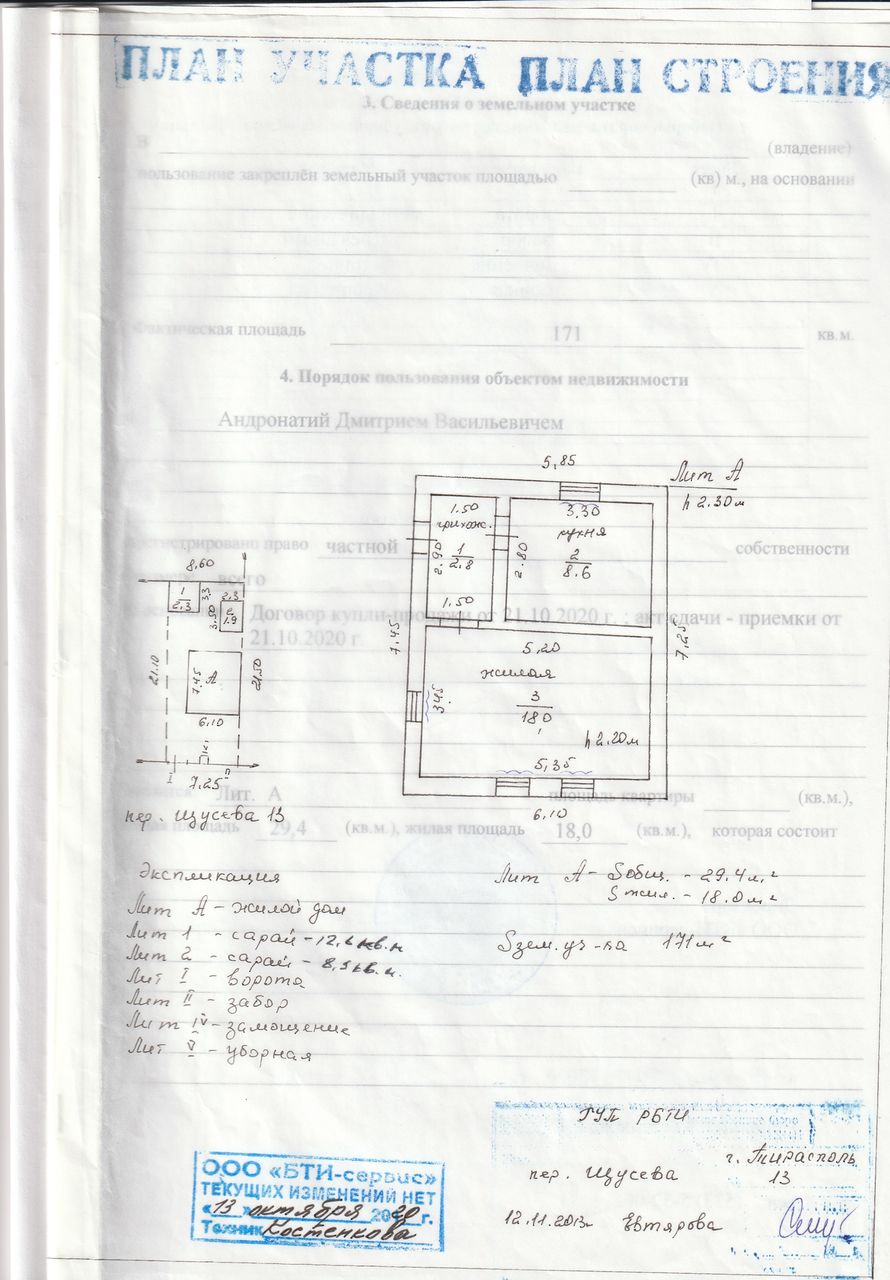 ПЛАН УЧАСТКА ПЛАН СТРОЕНИЯ
3. Сведения о земельном участке
В (владение)
пользование закреплён земельный участок площадью (кв) м., на основании
Фактическая площадь 171 кв.м.
4. Порядок пользования объектом недвижимости
Андронатий Дмитрием Васильевичем
5,85
Лит А
h 2.30м
1.50
прихож.
2.90
1
2.8
1.50
3,30
кухня
2.80
2
8.6
частной собственности
всего
Договор купли-продажи от 21.10 2020 г. ; акт сдачи - приемки от
21.10.2020 г.
8,60
1
2.3
3.3
2,3
3.50
2
1.9
21.10
7,45
А
21.50
6,10
II
IV
7,25
7.45
5,20
жилая
3
18.0
3.45
h 2.20м
5,35
7,25
6,10
Лит. А площадь квартиры (кв.м.),
площадь 29,4 (кв.м.), жилая площадь 18,0 (кв.м.), которая состоит
пер. Щусева 13
Экспликация
Лит А - жилой дом
Лит 1 - сарай - кв.м
Лит 2 - сарай - кв.м.
Лит I - ворота
Лит II - забор
Лит IV - замощение
Лит V - уборная
Лит А - Sобщ. - 29.4 м.²
Sжил. - 18.0м²
Sзем.уч-ка 171м²
ООО «БТИ-сервис»
ТЕКУЩИХ ИЗМЕНЕНИЙ НЕТ
«13» октября 2020 г.
Техник Костенкова
ГУП РБТИ
г. Тирасполь
пер. Щусева 13
12.11.2013г Евтярова